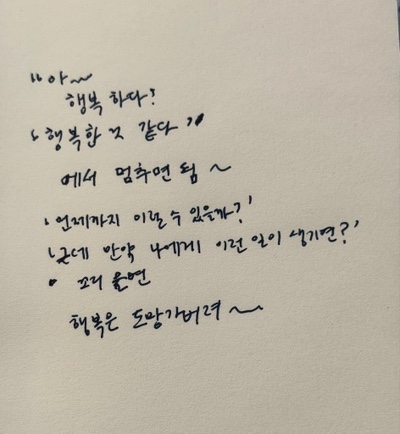 "아~
행복하다!
'행복한 것 같다'"
에서 멈추면 됨~
'언제까지 이럴 수 있을까?'
'근데 만약 나에게 이런 일이 생기면?'
• 꼬리 물면
행복은 도망가버려~